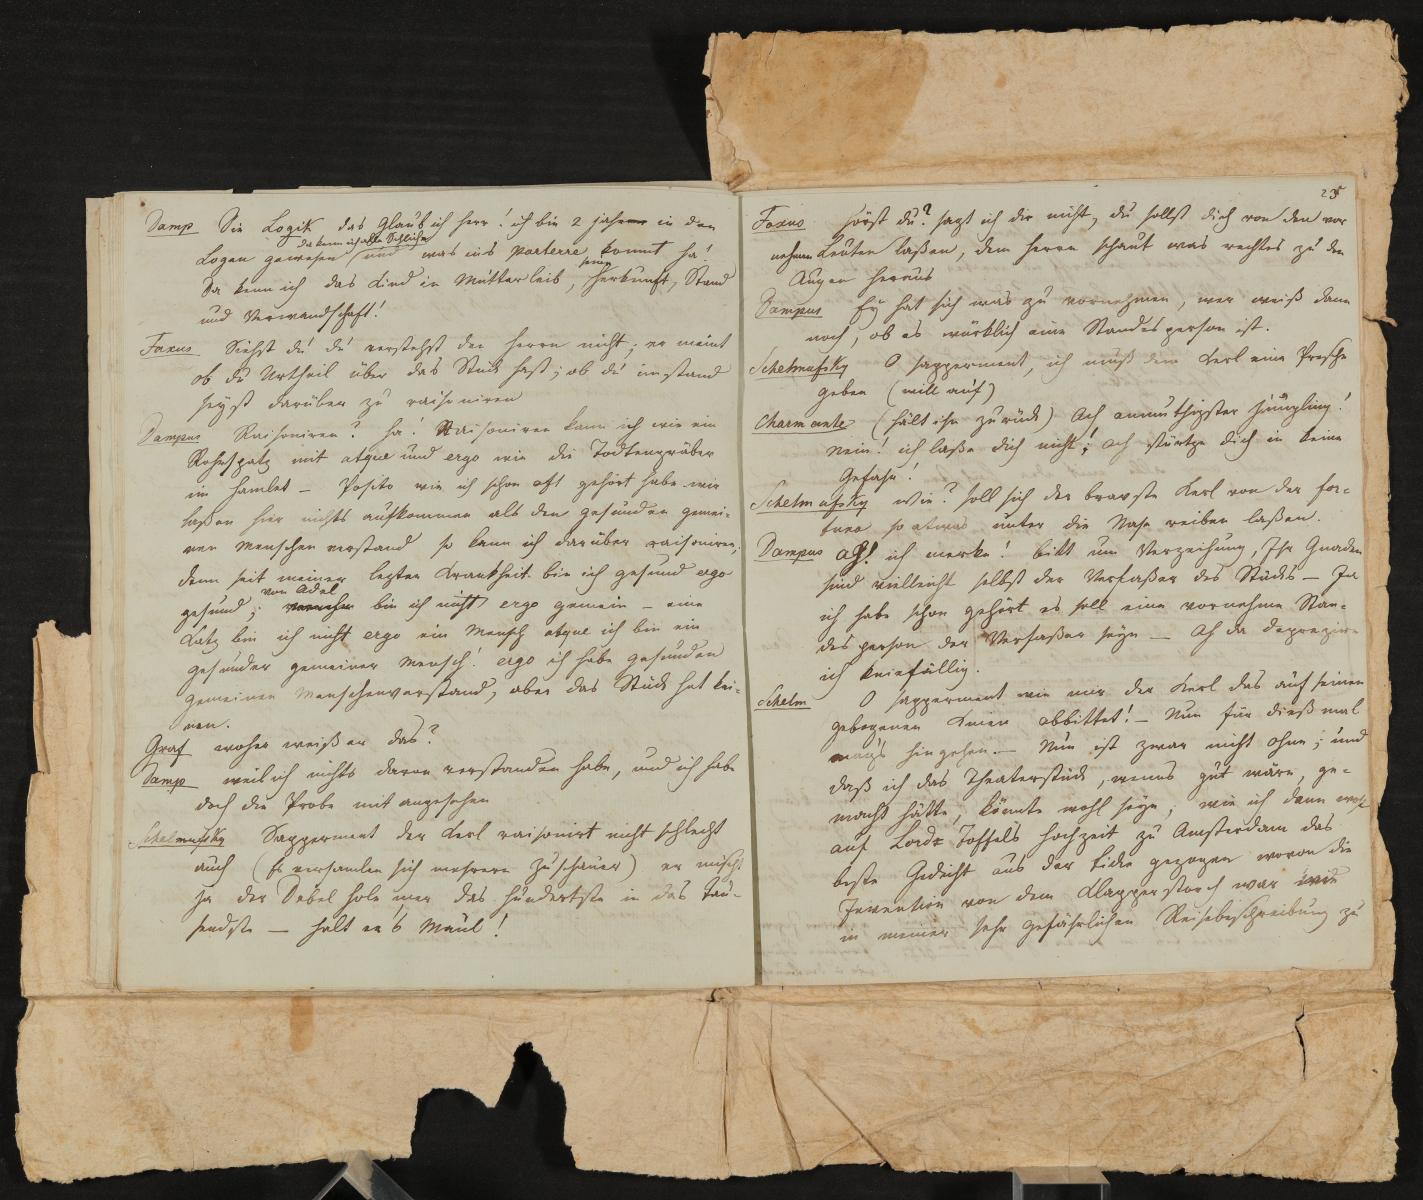 Damp Die Logik das Glaub ich Herr! ich bin 2 Jahre in den
da kenn ich alle Schliche
Logen gewesen und was ins Parterre kommt ha!
seine
Da kenn ich das Kind in Mutterleib, Herkunft, Stand
und Verwandschaft!
Faxus Siehst du du verstehst den Herrn nicht; er meint
ob du Urtheil über das Stück hast; ob du im stand
seyst darüber zu raisoniren
Dampus Raisoniren? ha! Raisoniren kann ich wie ein
Rohrspatz mit atque und ergo wie die Todtengräber
im Hamlet — Posito wie ich schon oft gehört habe wir
laßen hier nichts aufkommen als den gesunden gemei-
nen Menschenverstand so kann ich darüber raisoniren,
denn seit meiner lezten Krankheit bin ich gesund ergo
von Adel
gesund; vornehm bin ich nicht ergo gemein — eine
Katz bin ich nicht ergo ein Mensch atque ich bin ein
gesunder gemeiner Mensch! ergo ich habe gesunden
gemeinen Menschenverstand, aber das Stück hat kei-
nen.
Graf woher weiß er das?
Damp weil ich nichts davon verstanden habe, und ich habe
doch die Probe mit angesehen
Schelmufsky Sapperment der Kerl raisonirt nicht schlecht
auch (Es versamlen sich mehrere Zuschauer) er mischt
ja der Tebel hole mer das hundertste in das tau-
sendste — halt er's Maul!
25
Faxus Hörst du? sagt ich dir nicht, du sollst dich von den vor
nehmen Leuten laßen, dem Herrn schaut was rechtes zu den
Augen heraus
Dampus Ey hat sich was zu vornehmen, wer weiß dann
noch, ob es würklich eine Standesperson ist.
Schelmufsky O sapperment, ich muß dem Kerl eine Presche
geben (will auf)
Charmante (hält ihn zurück) Ach anmuthigster Jüngling!
Nein! ich laße dich nicht! ach stürtze dich in keine
Gefahr!
Schelmufsky Wie? soll sich der bravste Kerl von der for-
tune so etwas unter die Nase reiben laßen.
Dampus Ach! ich merke! bitt um Verzeihung, Ihr Gnaden
sind vielleicht selbst der Verfaßer des Stücks — Ja
ich habe schon gehört es soll eine vornehme Stan-
des person der Verfaßer seyn — Ach da deprezire
ich kniefällig.
Schelm O sapperment wie mir der Kerl das auf seinen
gebogenen Knien abbittet! — Nun für dießmal
mag's hingehen — Nun ist zwar nicht ohne; und
daß ich das Theaterstück, wenns gut wäre, ge-
macht hätte, könnte wohl seyn; wie ich dann
auf Lords Toffels Hochzeit zu Amsterdam das
beste Gedicht aus der Ficke gezogen wovon die
Invention von dem Klapperstorch war wie
in meiner sehr gefährlichen Reisebeschreibung zu